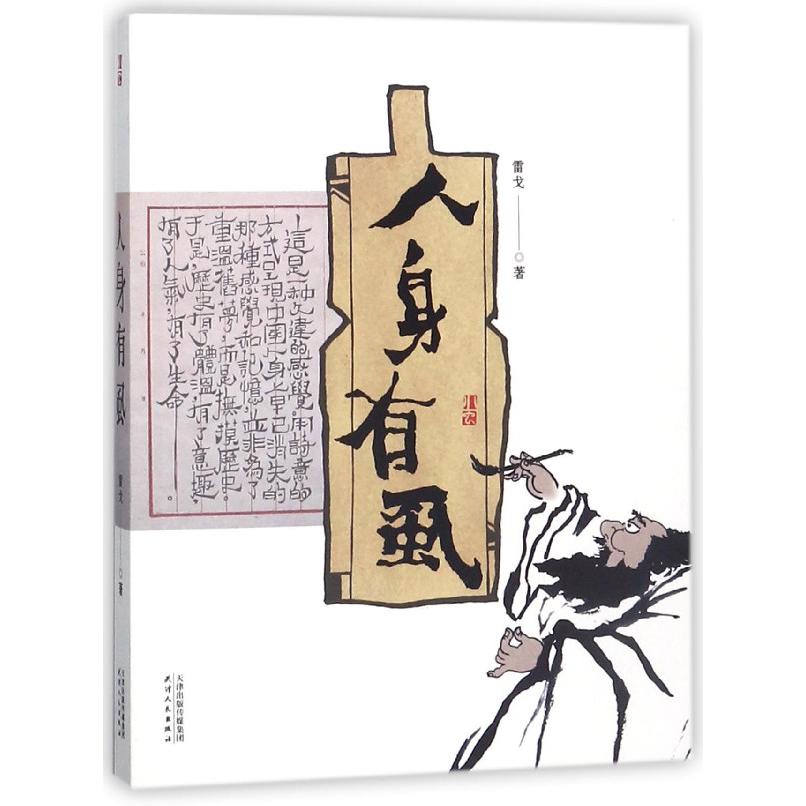 人身有虱
雷戈 ○ 著
—這是一种久違的感覺,用詩意的
方式呈現中國人身上早已消失的
那種感覺和記憶,並非為了
重溫舊夢,而是撫摸歷史。
于是,歷史有了體溫,有了意趣,
有了人氣,有了生命——。
天津出版传媒集团
天津人民出版社
人身有虱
雷戈 ○ 著
天津出版传媒集团
天津人民出版社